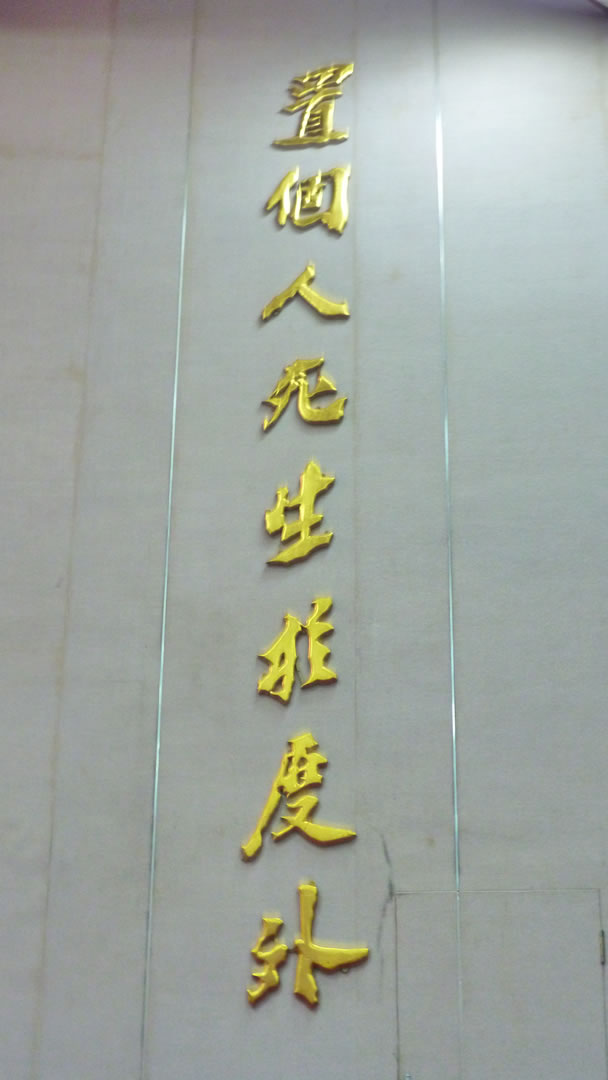 置個人死生於度外